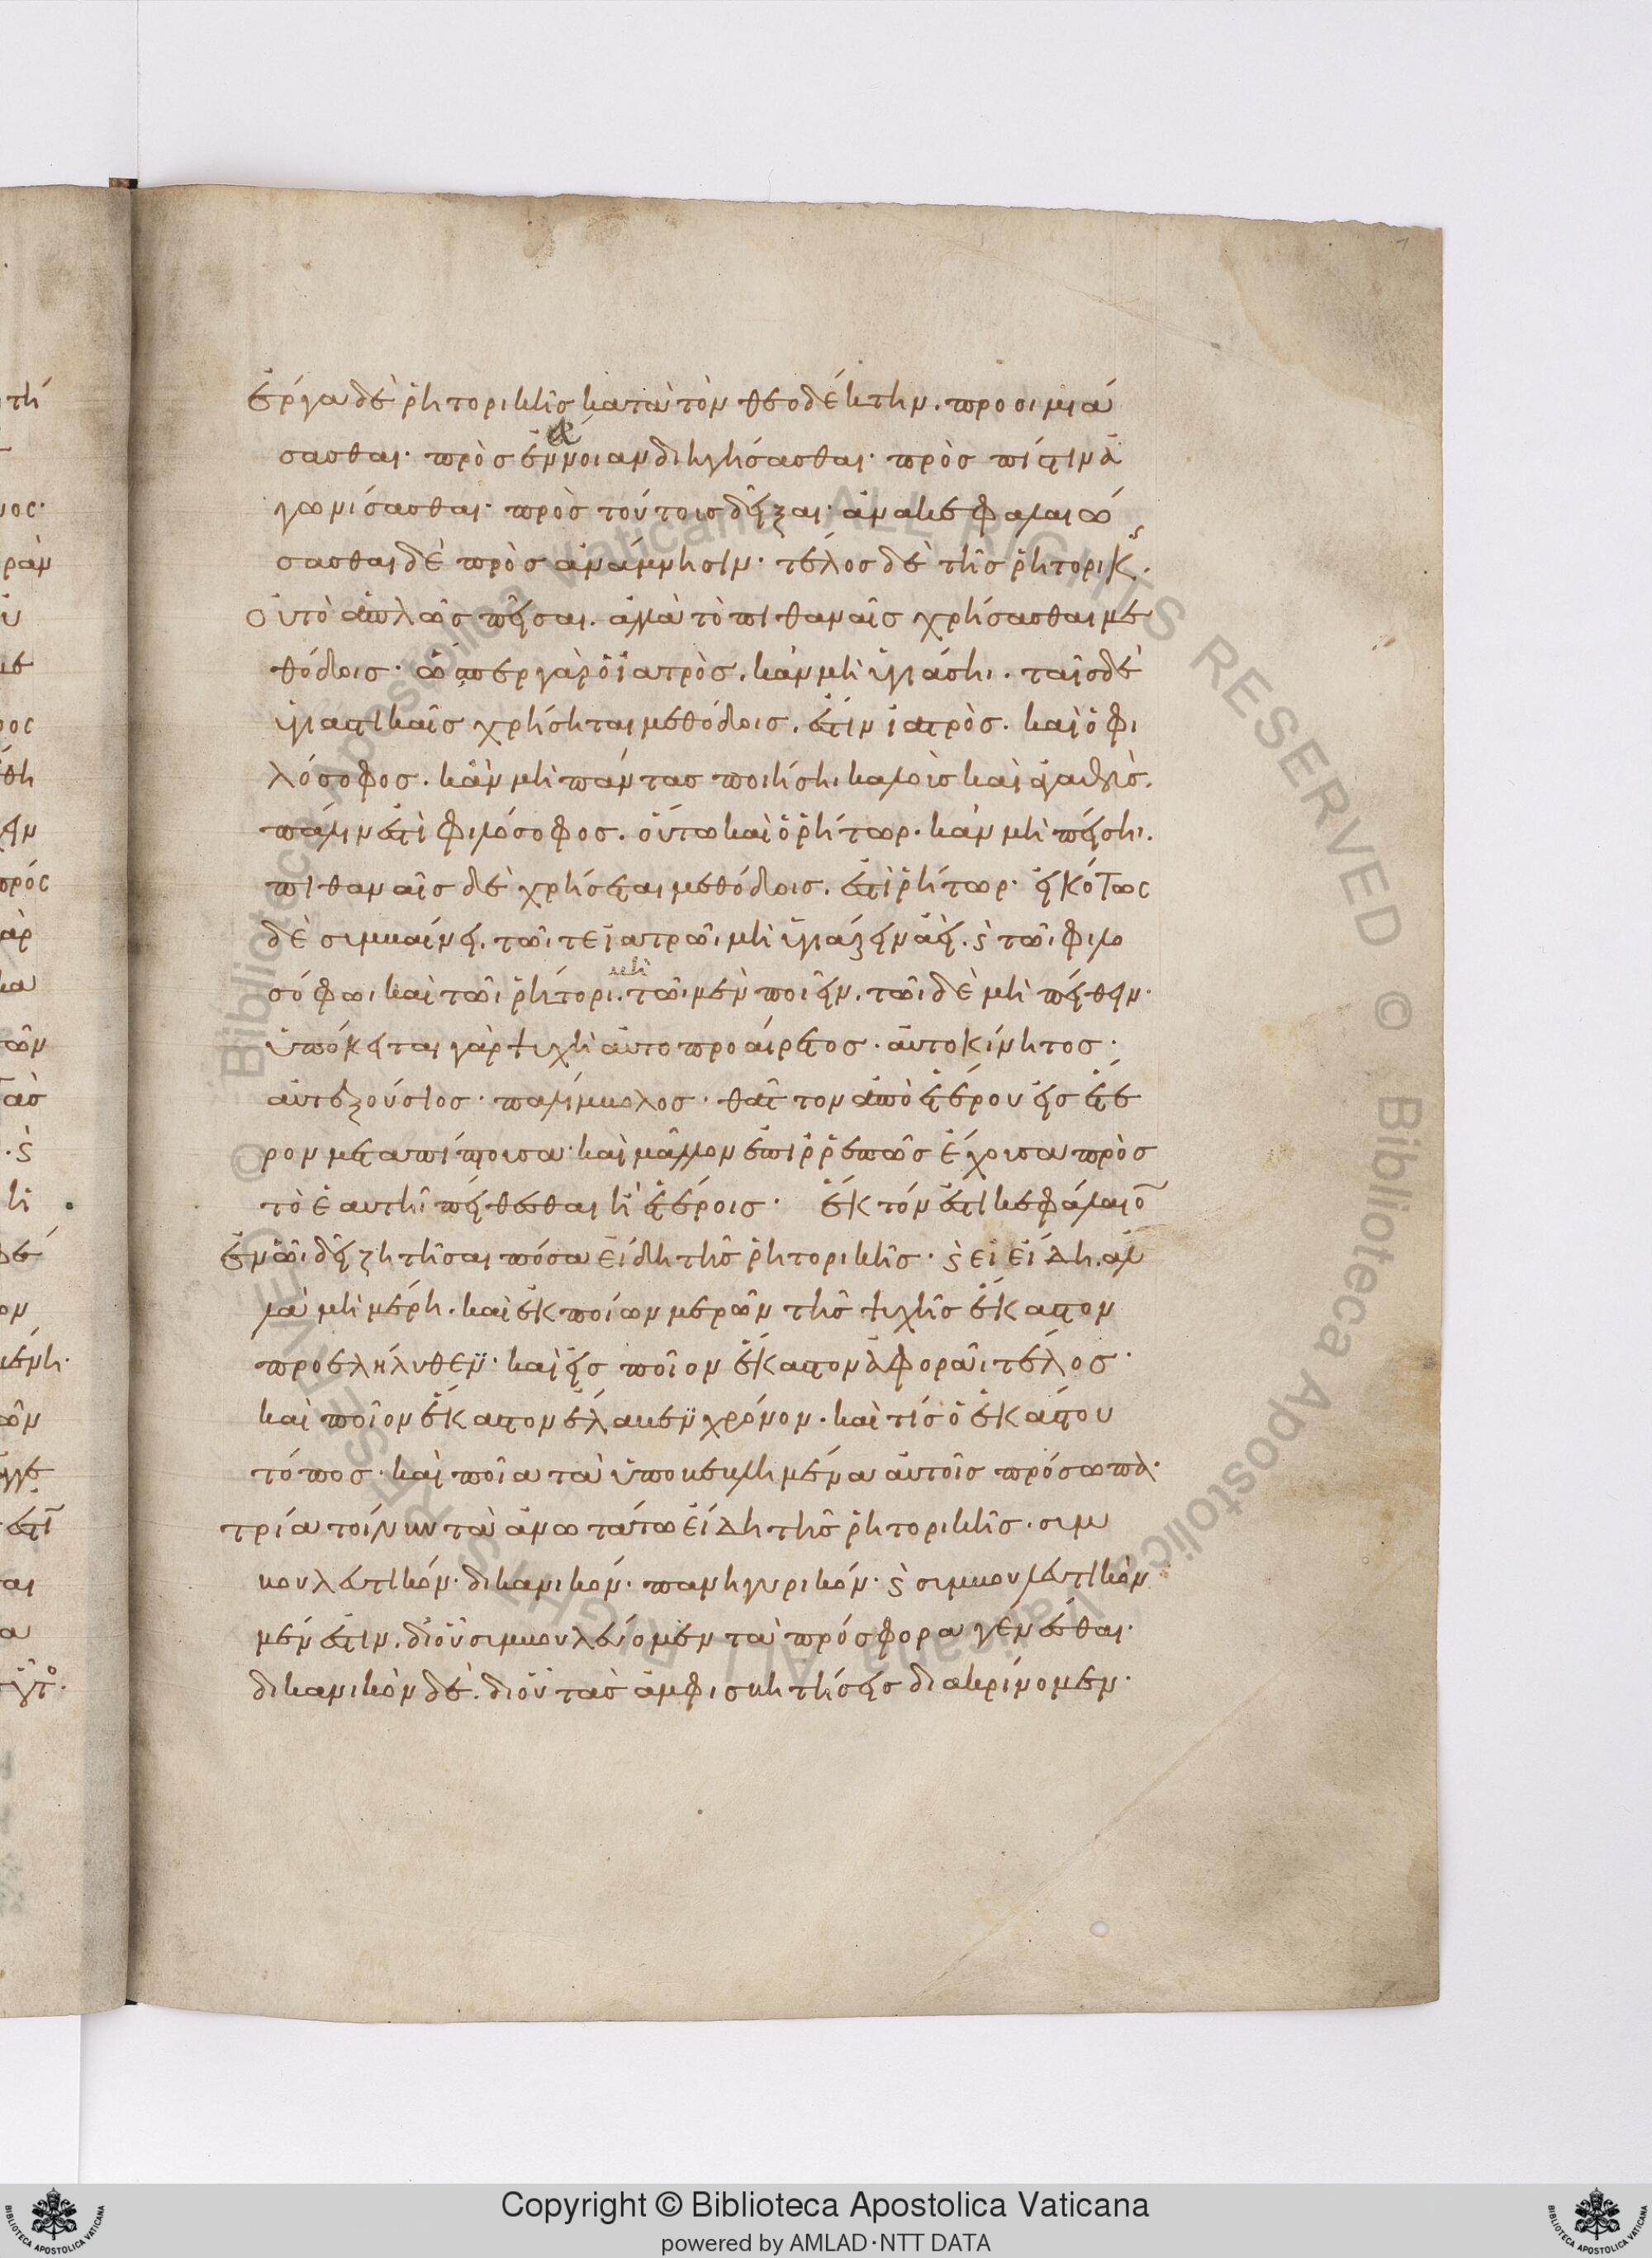 ἔργα δὲ ῥητορικῆς κατὰ τὸν θεοδέκτην. προοιμιά
σασθαι· πρὸς εὔνοιαν διηγήσασθαι· πρὸς πίστιν ἀ
γωνίσασθαι· πρὸς τούτοις δεῖξαι· ἀνακεφαλαιώ
σασθαι δὲ πρὸς ἀνάμνησιν· τέλος δὲ τῆς ῥητορικῆς.
οὐ τὸ ἁπλῶς πεῖσαι. ἀλλὰ τὸ πιθαναῖς χρήσασθαι με
θόδοις· ὥσπερ γὰρ ὁ ἰατρὸς. κἂν μὴ ὑγιάσηι. ταῖς δὲ
ὑγιαστικαῖς χρήσηται μεθόδοις. ἐστὶν ἰατρὸς. καὶ ὁ φι
λόσοφος. κἂν μὴ πάντας ποιήσηι καλοὺς καὶ ἀγαθοὺς.
πάλιν ἐστὶ φιλόσοφος. οὕτω καὶ ὁ ῥήτωρ. κἂν μὴ πείσηι.
πιθαναῖς δὲ χρήσεται μεθόδοις. ἐστὶ ῥήτωρ· εἰκότως
δὲ συμβαίνει. τῶι τε ἰατρῶι μὴ ὑγιάζειν ἀεὶ. καὶ τῶι φιλο
σόφωι καὶ τῶι ῥήτορι. τῶι μὲν μὴ ποιεῖν. τῶι δὲ μὴ πείθειν·
ὑπόκειται γὰρ ψυχὴ αὐτοπροαίρετος. αὐτοκίνητος·
αὐτεξούσιος· παλίμβολος· θᾶττον ἀπὸ ἑτέρου εἰς ἕτε
ρον μεταπίπτουσα· καὶ μᾶλλον ἐπιρρεπῶς ἔχουσα πρὸς
τὸ ἑαυτῆι πείθεσθαι ἢ ἑτέροις· ἕκτόν ἐστι κεφάλαιον
ἐν ὧι δεῖ ζητῆσαι πόσα εἴδη τῆς ῥητορικῆς· καὶ εἰ εἴδη. ἀλ
λὰ μὴ μέρη. καὶ ἐκ ποίων μερῶν τῆς ψυχῆς ἕκαστον
προσελήλυθεν· καὶ εἰς ποῖον ἕκαστον ἀφορᾶι τέλος·
καὶ ποῖον ἕκαστον ἔλαβεν χρόνον. καὶ τίς ὁ ἑκάστου
τόπος· καὶ ποῖα τὰ ὑποβεβλημένα αὐτοῖς πρόσωπα·
τρία τοίνυν τὰ ἀνωτάτω εἴδη τῆς ῥητορικῆς. συμ
βουλευτικόν· δικανικόν· πανηγυρικόν· καὶ συμβουλευτικὸν
μέν ἐστιν. δι’ οὗ συμβουλεύομεν τὰ πρόσφορα γενέσθαι·
δικανικὸν δὲ. δι’ οὗ τὰς ἀμφισβητήσεις διακρίνομεν·
Copyright © Biblioteca Apostolica Vaticana
powered by AMLAD·NTT DATA